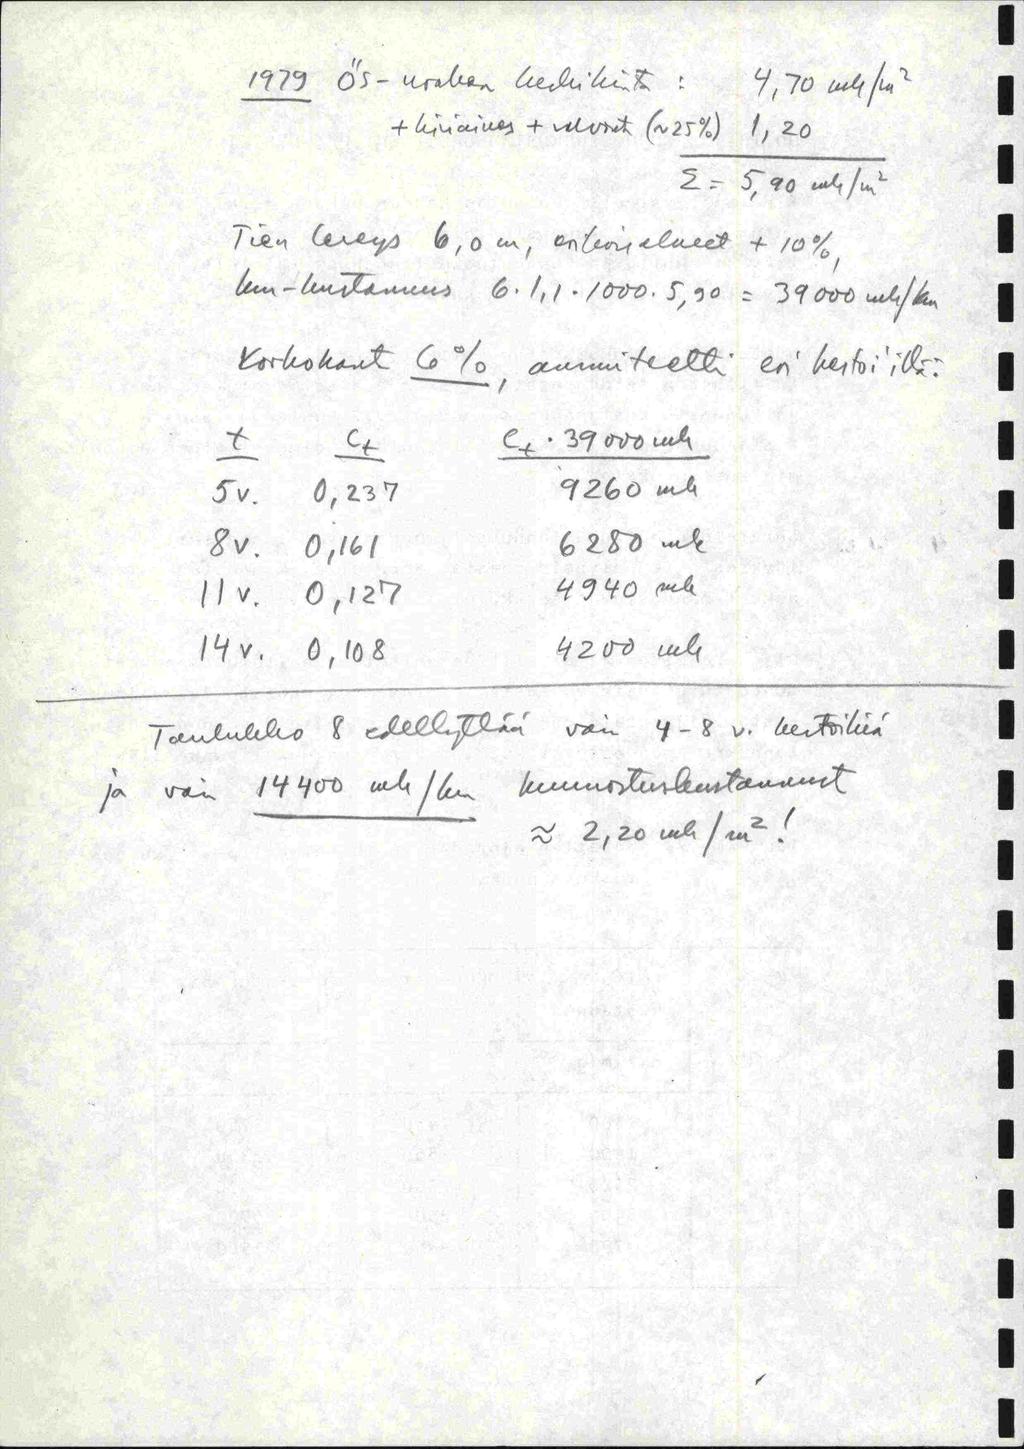 1979 ÖS-urakan keskihinta : 4,70 mk/m²
+ kiviaines + valvonta (~25%) 1,20
Σ = 5,90 mk/m²
Tien leveys 6,0 m, erikoisalueet + 10%,
km-kustannus 6·1,1·1000·5,90 = 39000 mk/km
Korkokant. 6%, annuiteetti eri kestoi'illä:
t Ct Ct · 39000 mk
5v. 0,237 9260 mk
8v. 0,161 6280 mk
11v. 0,127 4940 mk
14v. 0,108 4200 mk
Taulukko 8 edellyttää vain 4-8 v. kestoikää
ja vain 14400 mk/km kunnostuskustannust
≈ 2,20 mk/m²!